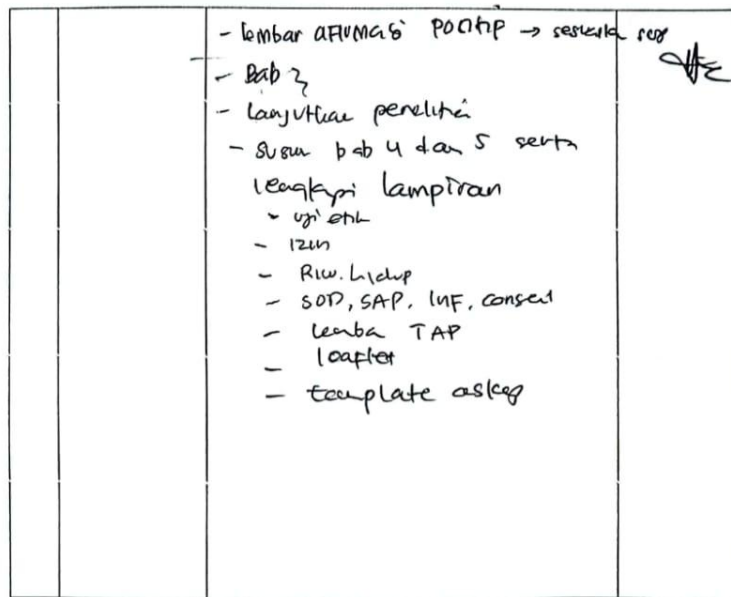 - lembar afirmasi positip → sesuaika
- Bab 3
- Lanjutkan penelitia
- Susun bab 4 dan 5 serta
lengkapi lampiran
- uji etik
- izin
- Riw. hidup
- SOP, SAP, INF, consent
- lemba TAP
- leaflet
- template askep